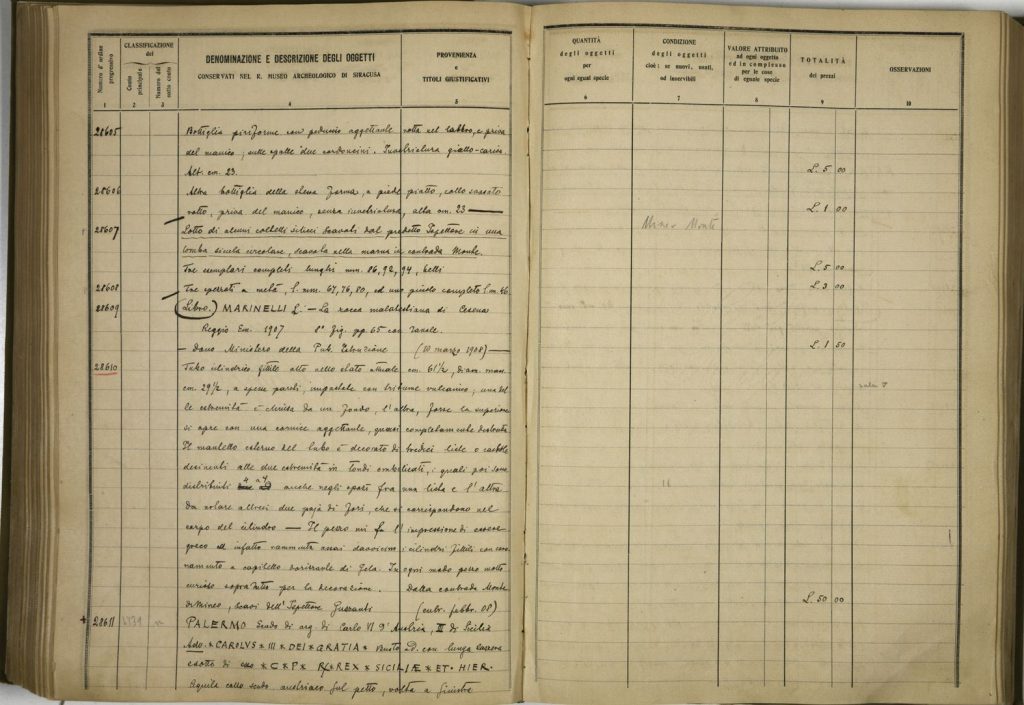 CLASSIFICAZIONE
del
Numero d'ordine progressivo
Conto principale
Numero del sotto conto
DENOMINAZIONE E DESCRIZIONE DEGLI OGGETTI
CONSERVATI NEL R. MUSEO ARCHEOLOGICO DI SIRACUSA
PROVENIENZA
E
TITOLI GIUSTIFICATIVI
1 2 3 4 5
28605 Bottiglia piriforme con peduccio aggettante rotta nel labbro, e priva
del manico; sulle spalle due cordoncini. Invetriatura giallo-
Alt. cm. 23.
28606 Altra bottiglia della stessa forma, a piede piatto, collo
rotto, priva del manico, senza invetriatura, alta cm. 23
28607 Lotto di alcuni coltelli silicei scavati dal predetto Ispettore in una
tomba sicula circolare, scavata nella marna in contrada Monte.
Tre esemplari completi lunghi mm. 86, 92, 94, belli
28608 Tre spezzati a metà, l. mm. 67, 76, 80, ed uno piccolo completo l. m. 46
28609 (Libro.) MARINELLI L. - La rocca malatestiana di Cesena
Reggio Em. 1907 8° fig. pp. 65 con tavole.
- Dono Ministero della Pub. Istruzione (10 marzo 1908)
28610 Tubo cilindrico fittile alto nello stato attuale cm. 61½, diam. mass.
cm. 29½, a spesse pareti, impastate con tritume vulcanico, una del
le estremità è chiusa da un fondo, l'altra, forse la superiore
si apre con una cornice aggettante, quasi completamente distrutta
Il mantello esterno del tubo è decorato di tredici liste o
desinenti alle due estremità in tondi ombelicati, i quali poi sono
distribuiti a 4 a 4 anche negli spazi fra una lista e l'altra
Da notare altresì due paja di fori, che si corrispondono nel
corpo del cilindro — Il pezzo mi fa l'impressione di essere
greco ed infatto rammenta assai davvicino i cilindri fittili con coro
namento a capitello di Gela. In ogni modo pezzo molto
curioso sopratutto per la decorazione. Dalla contrada Monte
di Mineo, scavi dell'Ispettore Guzzanti (entr. febbr. 08)
+ 28611 PALERMO Scudo di arg. di Carlo VI d'Austria, III di Sicilia
* CAROLVS * III * DEI * GRATIA * Busto a D. con lunga
* C * P * REX * SICILIÆ * ET * HIER.
Aquila collo scudo austriaco sul petto, volta a sinistra
QUANTITÀ
degli oggetti
per
ogni eguali specie
CONDIZIONE
degli oggetti
cioè: se nuovi, usati,
od inservibili
VALORE ATTRIBUITO
ad ogni oggetto
ed in complesso
per le cose
di eguale specie
TOTALITÀ
dei prezzi
OSSERVAZIONI
6 7 8 9 10
L. 5 00
L. 1 00
Mineo Monte
L. 5 00
L. 3 00
L. 1 50
L. 50 00